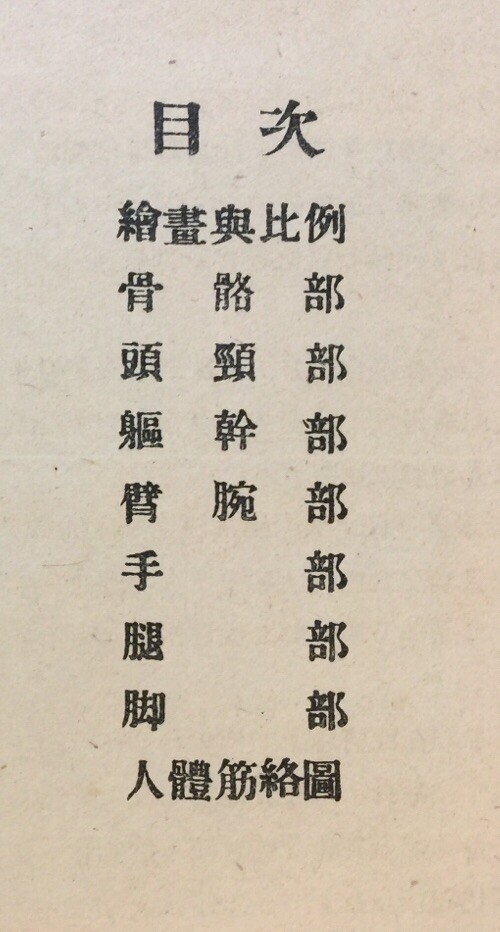 目次
繪畫與比例
骨骼部
頭頸部
軀幹部
臂腕部
手部
腿部
脚部
人體筋絡圖